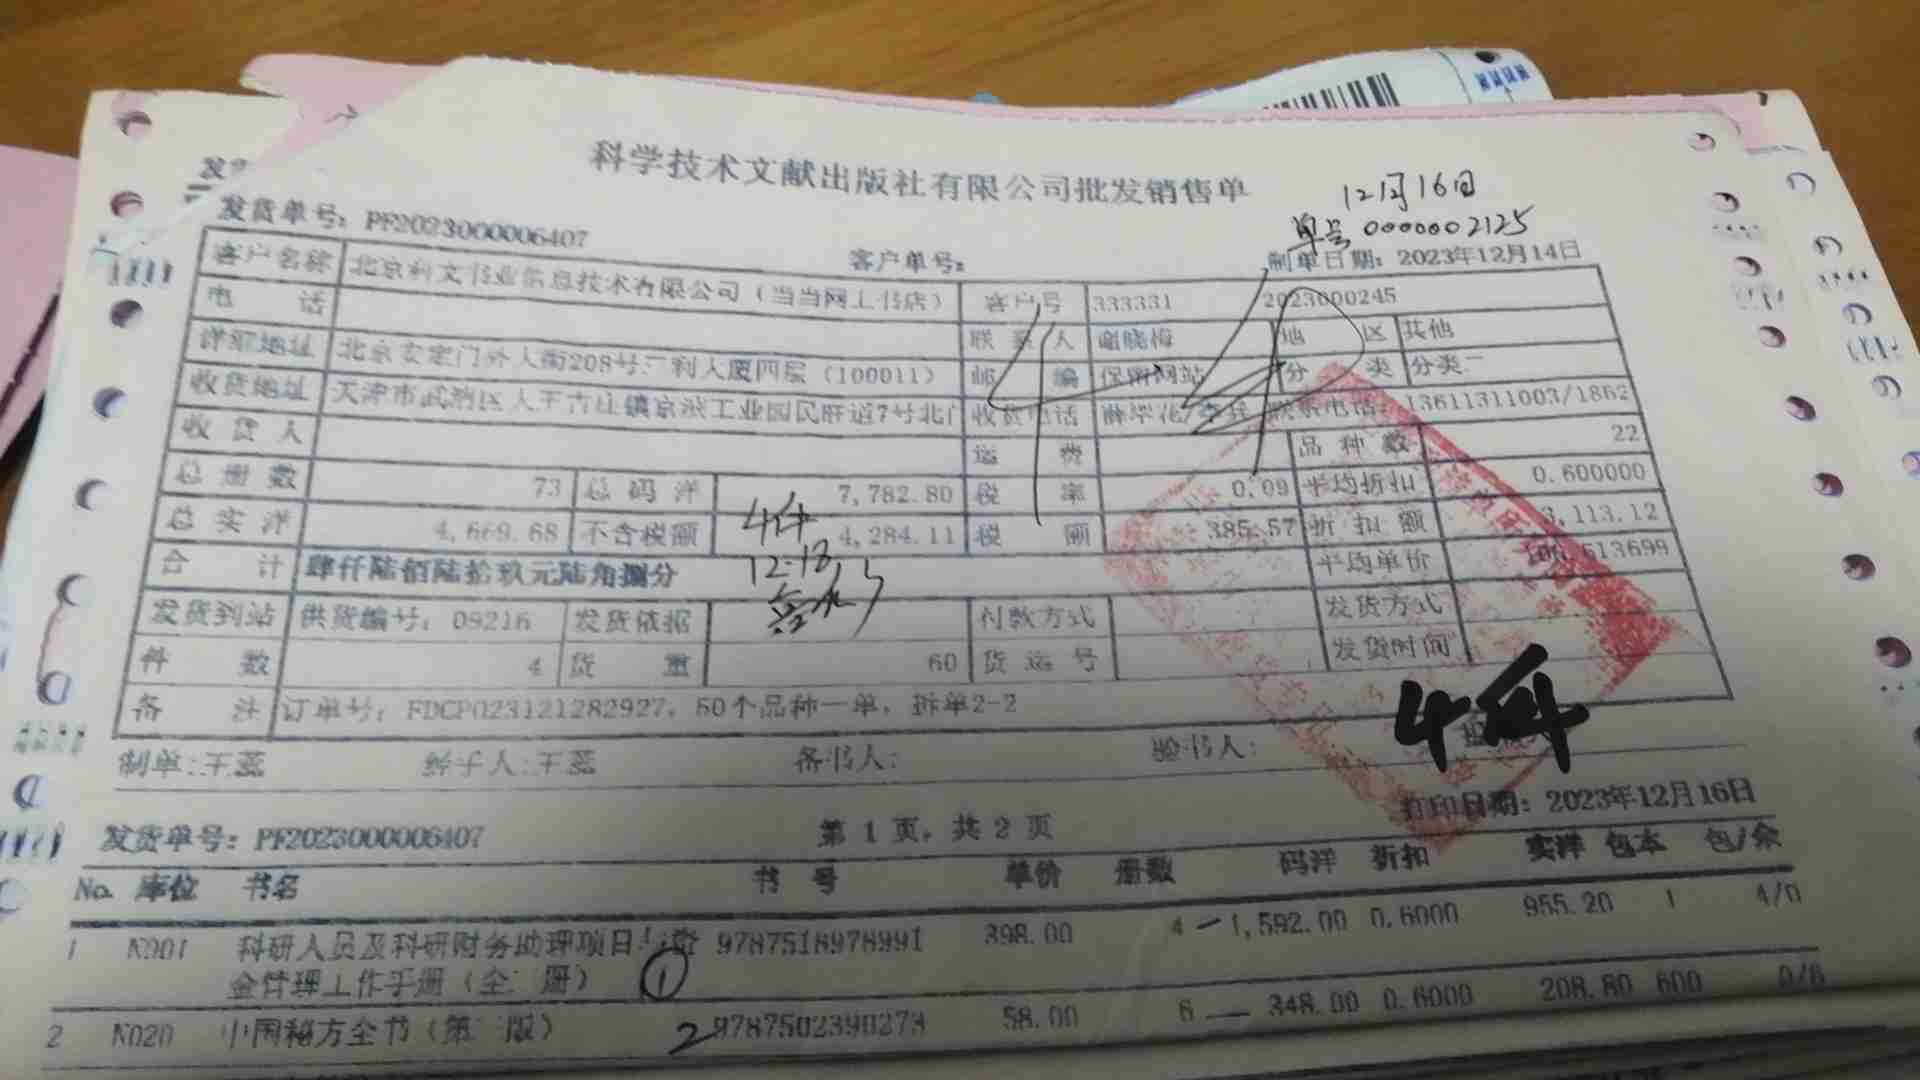 科学技术文献出版社有限公司批发销售单
12月16日
单号 0000002125
发货单号: PF2023000006407
客户单号:
制单日期: 2023年12月14日
客户名称 北京科文书业信息技术有限公司（当当网上书店） 客户号 333331 2023000245
电 话 联系人 谢晓梅 地 区 其他
详细地址 北京安定门外大街208号三利大厦四层（100011） 邮 编 保留网站 分 类 分类二
收货地址 天津市武清区大王古庄镇京滨工业园民旺道7号北门 收货电话 联系电话: 13611311003/1862
收 货 人 运 费 品 种 数 22
总 册 数 73 总 码 洋 7,782.80 税 率 0.09 平均折扣 0.600000
总 实 洋 4,669.68 不含税额 4,284.11 税 额 385.57 折 扣 额 3,113.12
4件
合 计 肆仟陆佰陆拾玖元陆角捌分 平均单价 106.613699
12.18
发货到站 供货编号: 09216 发货依据 付款方式 发货方式
件 数 4 货 重 60 货 运 号 发货时间
备 注 订单号: FDCP023121282927, 50个品种一单, 拆单2-2
4件
制单:王蕊 经手人:王蕊 备书人: 验书人:
打印日期: 2023年12月16日
发货单号: PF2023000006407 第 1 页, 共 2 页
No. 库位 书名 书 号 单价 册数 码洋 折扣 实洋 包本 包/余
1 K001 科研人员及科研财务助理项目与资 9787518978991 398.00 4 1,592.00 0.6000 955.20 1 4/0
金管理工作手册（全二册） ①
2 K020 中国秘方全书（第二版） 2 9787502390273 58.00 6 348.00 0.6000 208.80 600 0/6